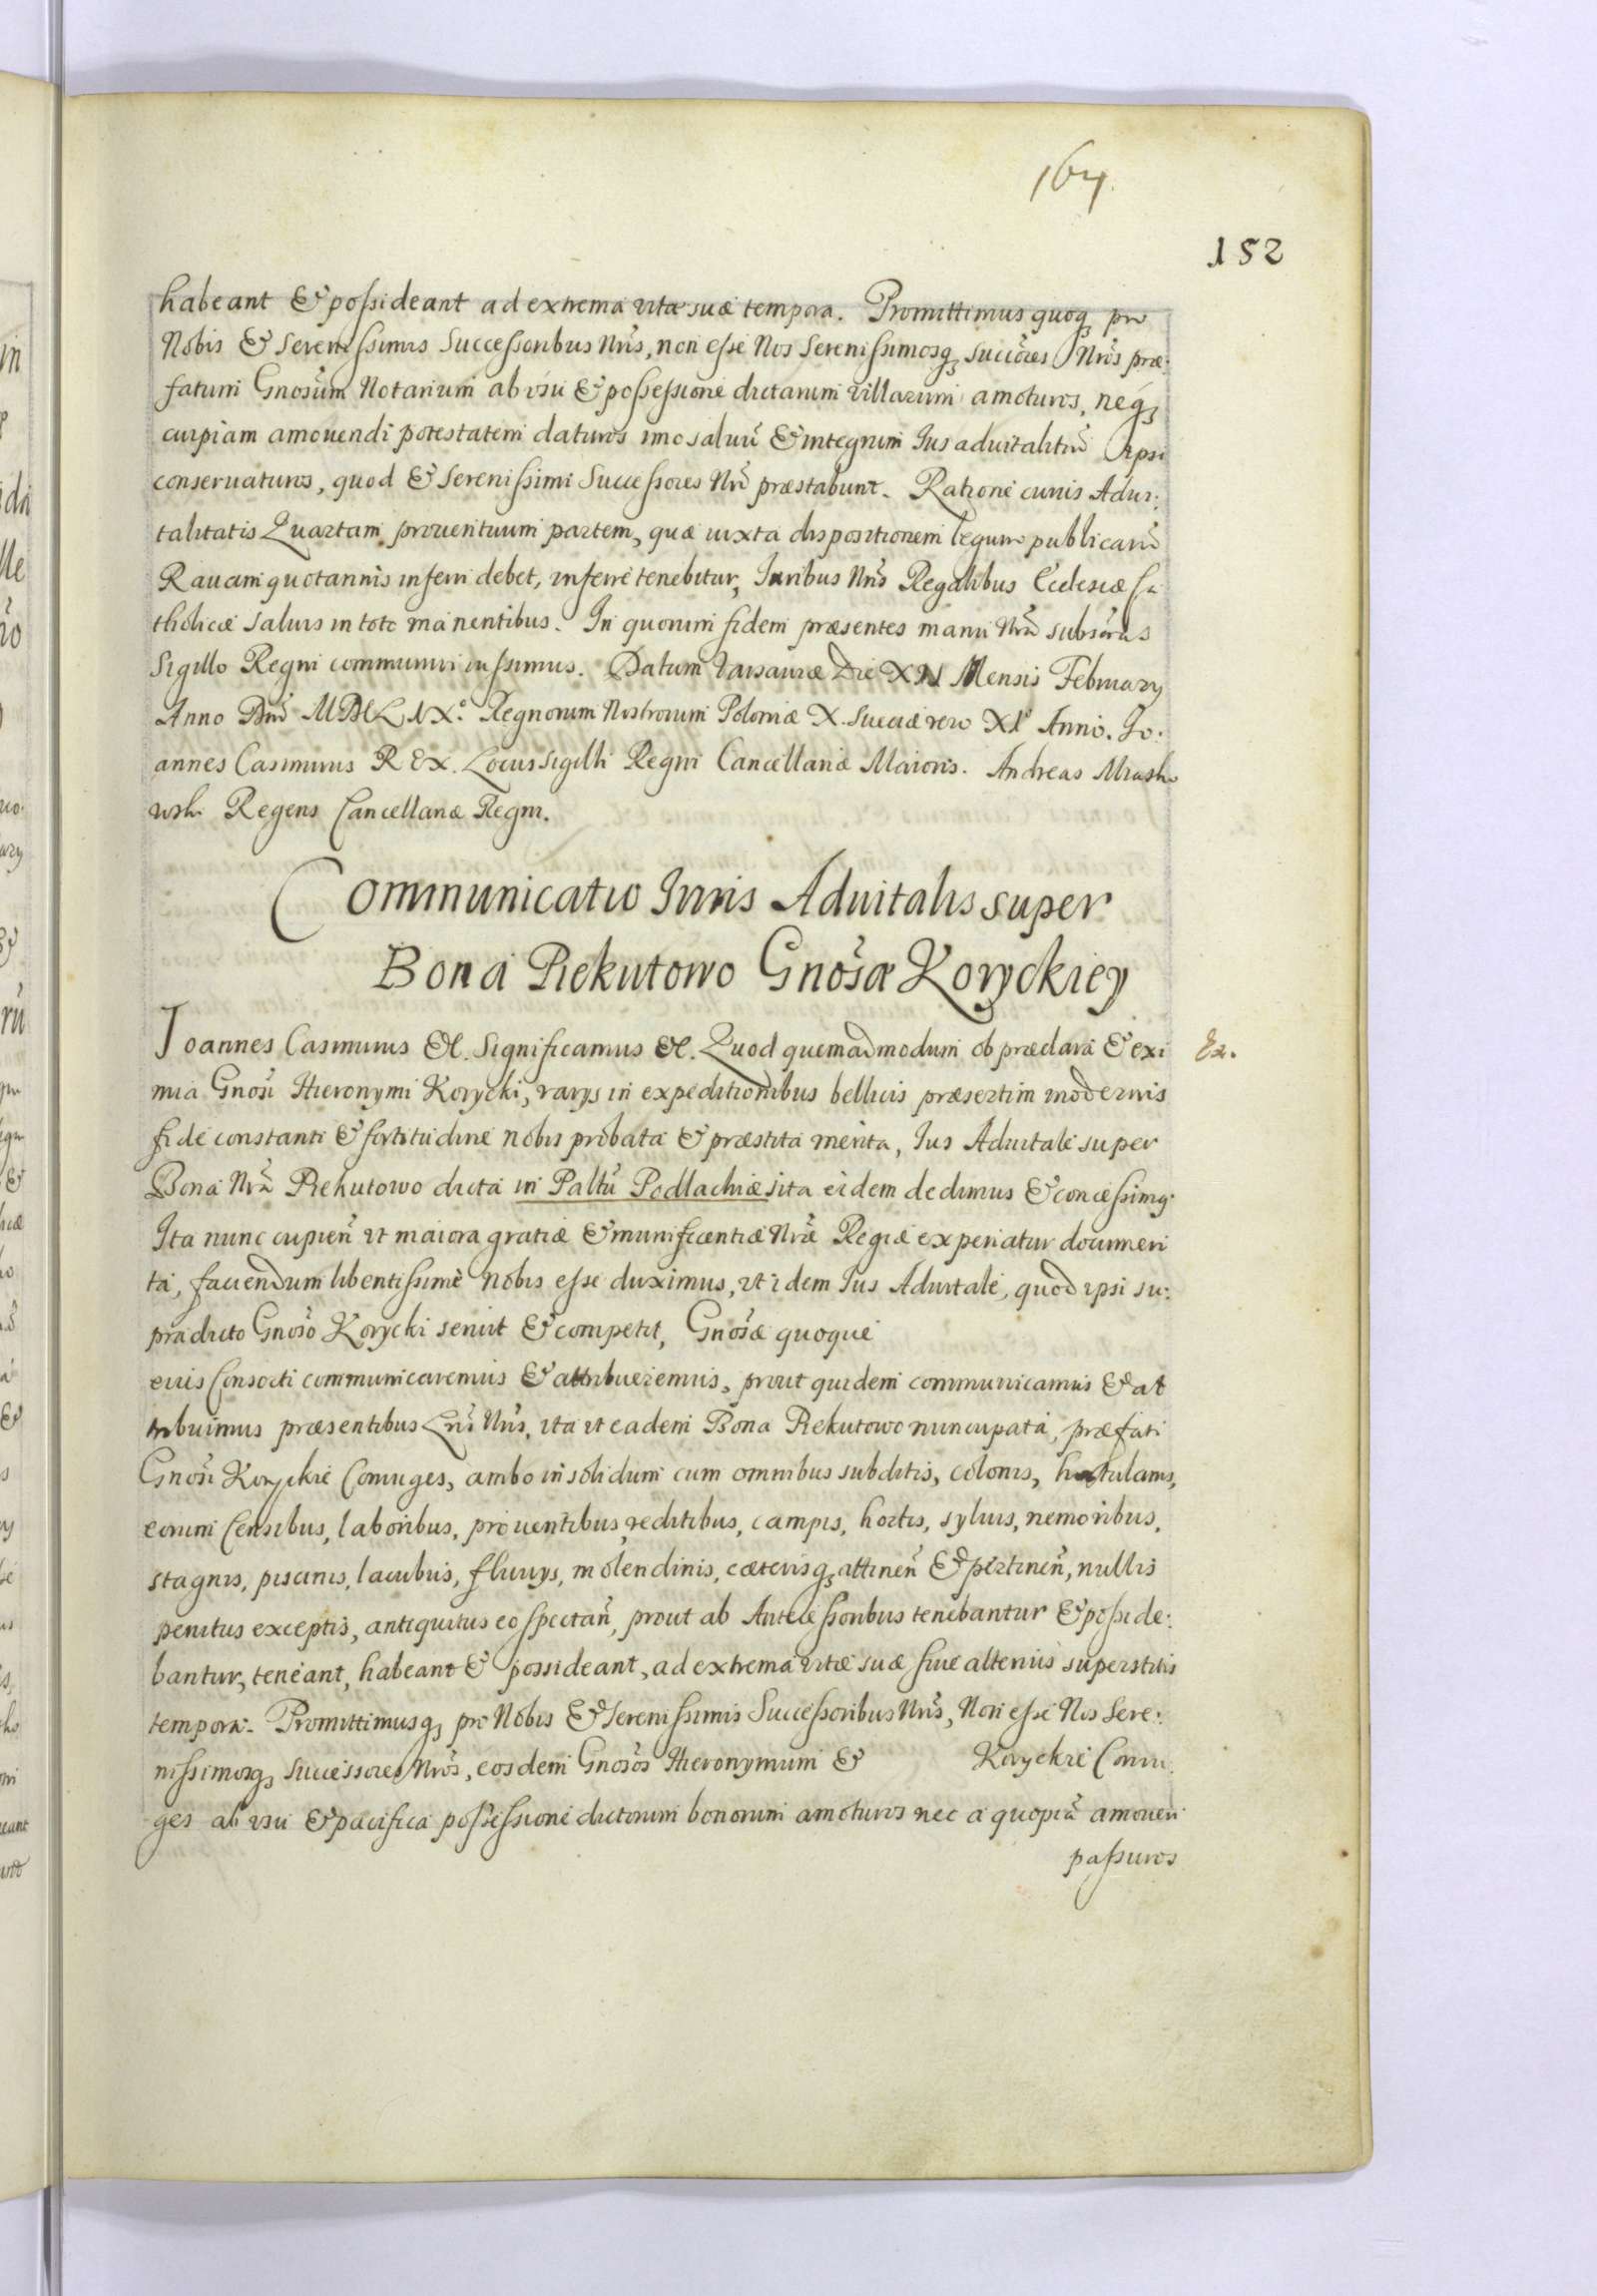 167.
152
habeant & possideant ad extrema vitæ suæ tempora. Promittimus quoq₃ pro
Nobis & Serenissimis Successoribus Nrı̃s, non esse Nos Serenissimosq₃ Succõres Nrõs præ:
fatum Gnosũm Notarium ab vsu & possessione dictarum villarum amoturos, neq₃
cuipiam amouendi potestatem daturos imo saluũ & integrum Ius aduitalitiũ ipsi
conseruaturos, quod & Serenissimi Successores Nrı̃ præstabunt. Ratione cuius Adui:
talitatis Quartam prouentuum partem, quæ iuxta dispositionem legum publicarũ
Rauam quotannis inferri debet, inferre tenebitur, Iuribus Nrı̃s Regalibus Ecclesiæ Ca
tholicæ saluis in toto manentibus. In quorum fidem præsentes manu Nrã subscr̃as
Sigillo Regni communiri iussimus. Datum Varsauiæ Die XIV Mensis February
Anno Dnı̃ MDCLIX.º Regnorum Nostrorum Poloniæ X. Sueciæ vero XIº Anno. Io:
annes Casimirus REX. Locus Sigilli Regni Cancellariæ Maioris. Andreas Miasko
wski Regens Cancellariæ Regni.
Communicatio Iuris Aduitalis super
Bona Piekutowo Gnosæ̃ Koryckiey
Ioannes Casimirus &c. Significamus &c. Quod quemadmodum ob præclara & exi
Ex.
mia Gnosı̃ Hieronymi Korycki, varys in expeditionibus bellicis præsertim modernis
fide constanti & fortitudine nobis probata & præstita merita, Ius Aduitale super
Bona Nrã Piekutowo dicta in Paltũ Podlachiæ sita eidem dedimus & concessimq.
Ita nunc cupieñ vt maiora gratiæ & munificentiæ Nræ̃ Regiæ experiatur documen
ta, faciendum libentissimè Nobis esse duximus, vt idem Ius Aduitale, quod ipsi su:
pradicto Gnosõ Korycki seruit & competit, Gnosæ̃ quoque
eius Consorti communicaremus & attribueremus, prout quidem communicamus & at
tribuimus præsentibus Lrı̃s Nrı̃s, ita vt eadem Bona Piekutowo nuncupata, præfati
Gnosı̃ Koryckie Coniuges, ambo in solidum cum omnibus subditis, colonis, hortulanis,
eorum Censibus, laboribus, prouentibus, reditibus, campis, hortis, syluis, nemoribus,
stagnis, piscinis, lacubus, fluuys, molendinis, cæterisq₃ attineñ & pertineñ, nullis
penitus exceptis, antiquitus eo spectañ, prout ab Antecessoribus tenebantur & posside:
bantur, teneant, habeant & possideant, ad extrema vitæ suæ siue alterius superstitis
tempora. Promittimusq₃ pro Nobis & Serenissimis Successoribus Nrı̃s, Non esse Nos Sere:
nissimosq₃ Successores Nrõs, eosdem Gnosõs Hieronymum & Koryckie Coniu:
ges ab vsu & pacifica possessione dictorum bonorum amoturos nec a quopiã amoueri
passuros